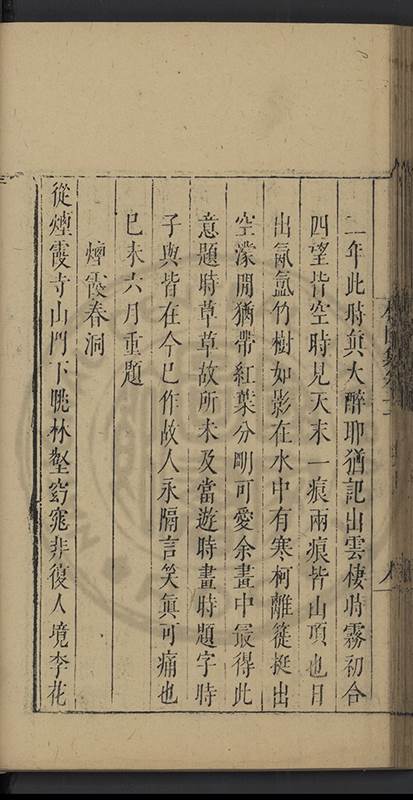 二年此時眞大醉耶猶記出雲棲時霧初合
四望皆空時見天末一痕兩痕皆山頂也日
出氤氳竹樹如影在水中有寒柯離簁挺出
空濛閒猶帶紅葉分明可愛余畫中最得此
意題時草草故所未及當遊時畫時題字時
子與皆在今巳作故人永隔言笑眞可痛也
巳未六月重題
煙霞春洞
從煙霞寺山門下眺林壑窈窕非復人境李花